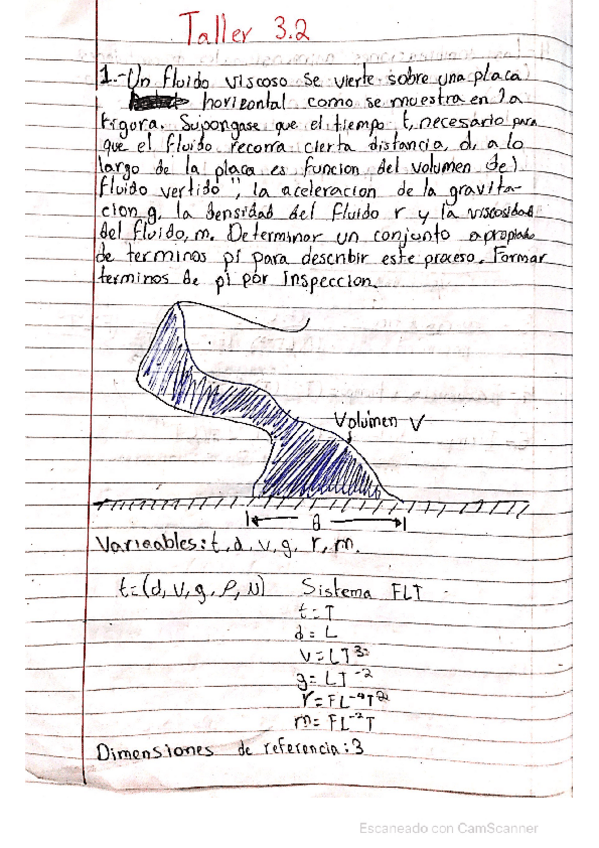 Taller 3.2
1.- Un fluido viscoso se vierte sobre una placa
horizontal como se muestra en la
figura. Supongase que el tiempo t, necesario para
que el fluido recorra cierta distancia, d, a lo
largo de la placa es funcion del volumen del
fluido vertido ", la aceleracion de la gravita-
cion g, la densidad del fluido r y la viscosidad
del fluido, m. Determinar un conjunto apropiado
de terminos pi para describir este proceso. Formar
terminos de pi por inspeccion.
Volumen V
Varieables: t, d, v, g, r, m.
t=(d, v, g, ρ, N) Sistema FLT
t=T
d=L
g=LT⁻²
r=FL⁻⁴T²
m=FL⁻²T
Dimensiones de referencia: 3
Escaneado con CamScanner